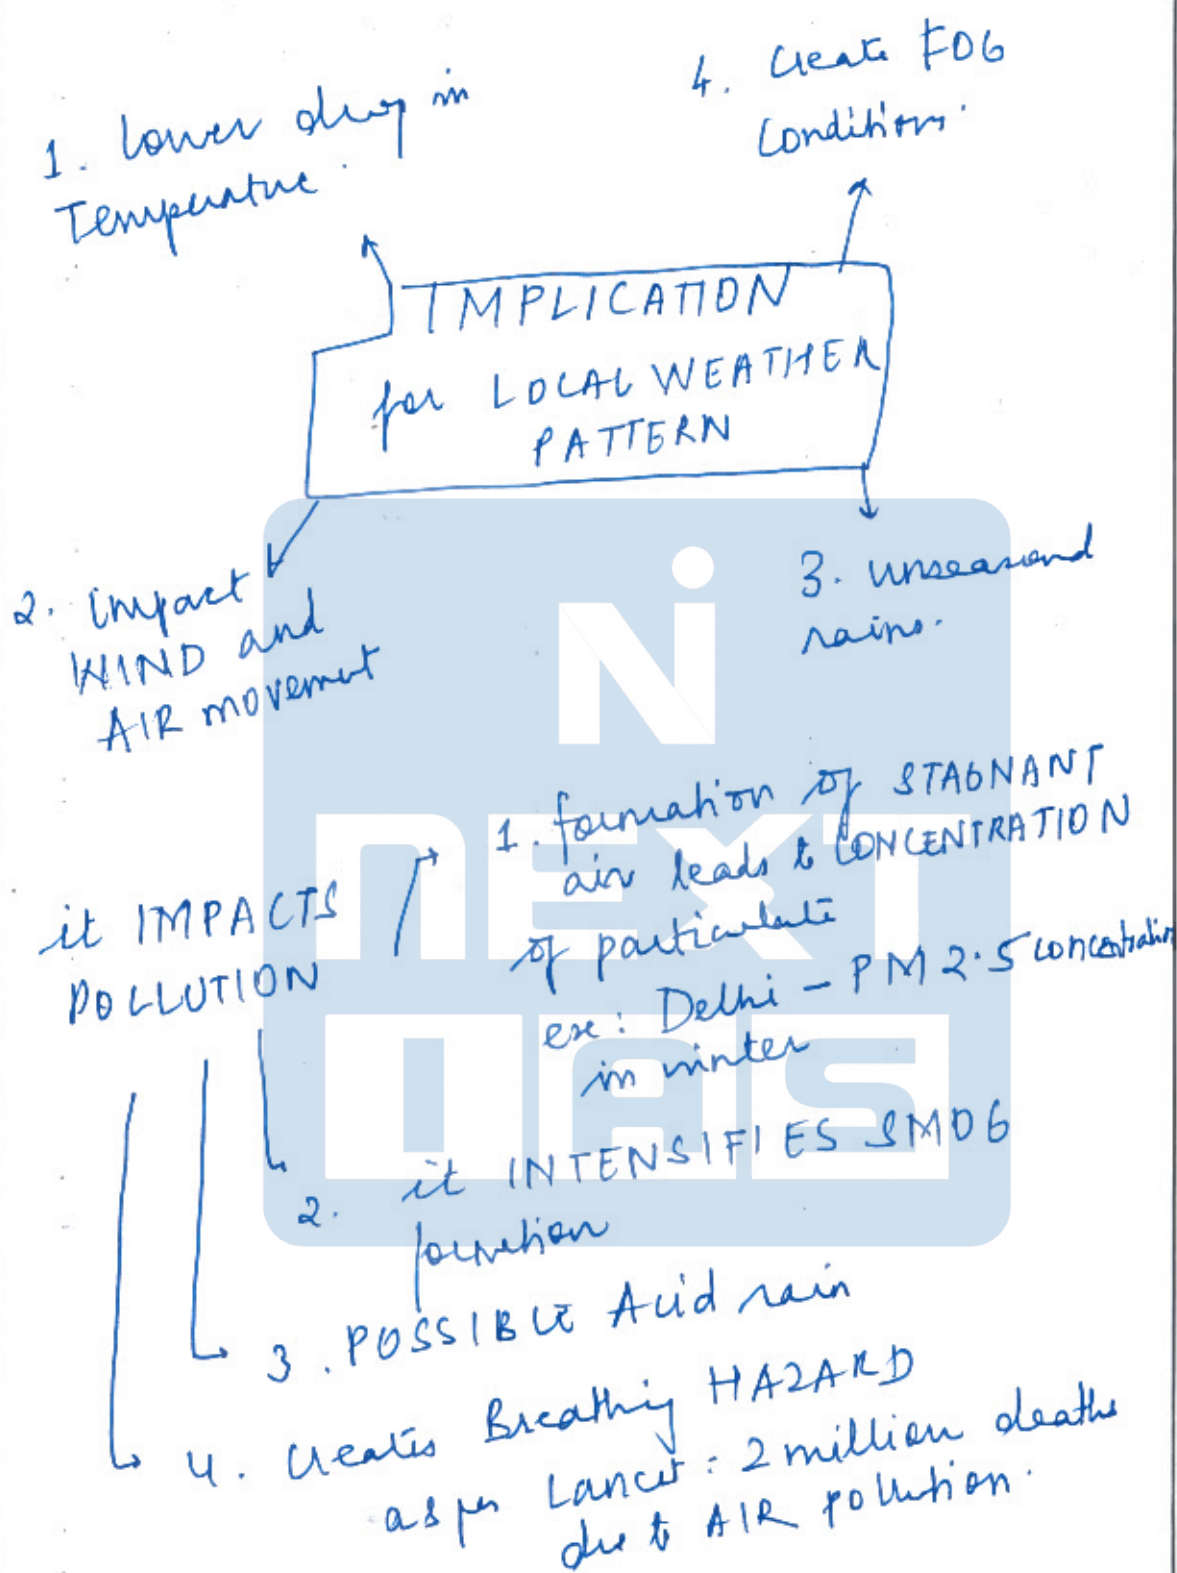 1. lower drop in
Temperature.
4. Create FOG
Conditions.
IMPLICATION
for LOCAL WEATHER
PATTERN
2. impact
WIND and
AIR movement
3. unseasonal
rains.
NEXT
IAS
it IMPACTS
POLLUTION
1. formation of STAGNANT
air leads to CONCENTRATION
of particulate
ex: Delhi – PM 2.5 concentration
in winter
2. it INTENSIFIES SMOG
formation
3. POSSIBLE Acid rain
4. Creates Breathing HAZARD
as per Lancet: 2 million deaths
due to AIR pollution.